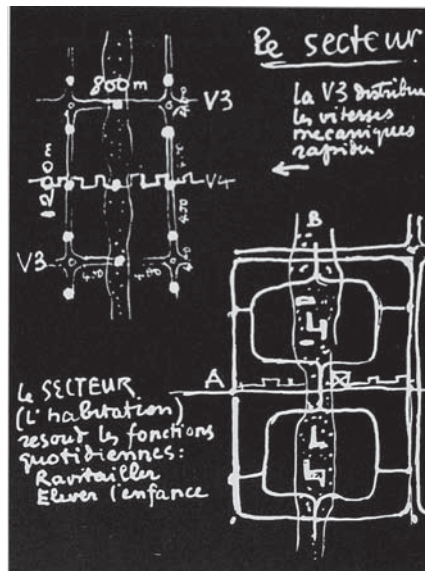 Le secteur
800 m
V3
la V3 distribue
les vitesses
mecaniques
rapides
1200 m
V4
V3
400
B
A
Le SECTEUR
(L'habitation)
resoud les fonctions
quotidiennes:
Ravitailler
Elever l'enfance